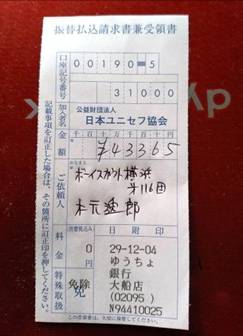 振替払込請求書兼受領書
口座記号番号
00190=5
31000
加入者名
公益財団法人
日本ユニセフ協会
金額
千百十万千百十円
¥43365
ご依頼人
おなまえ
ボーイスカウト横浜
第116団
様
料金
(消費税込み)
0
円
特殊取扱
免除
日附印
29-12-04
ゆうちょ
銀行
大船店
(02095)
N94410025
記載事項を訂正した場合は、その箇所に訂正印を押してください。
この受領証は、大切に保管してください。